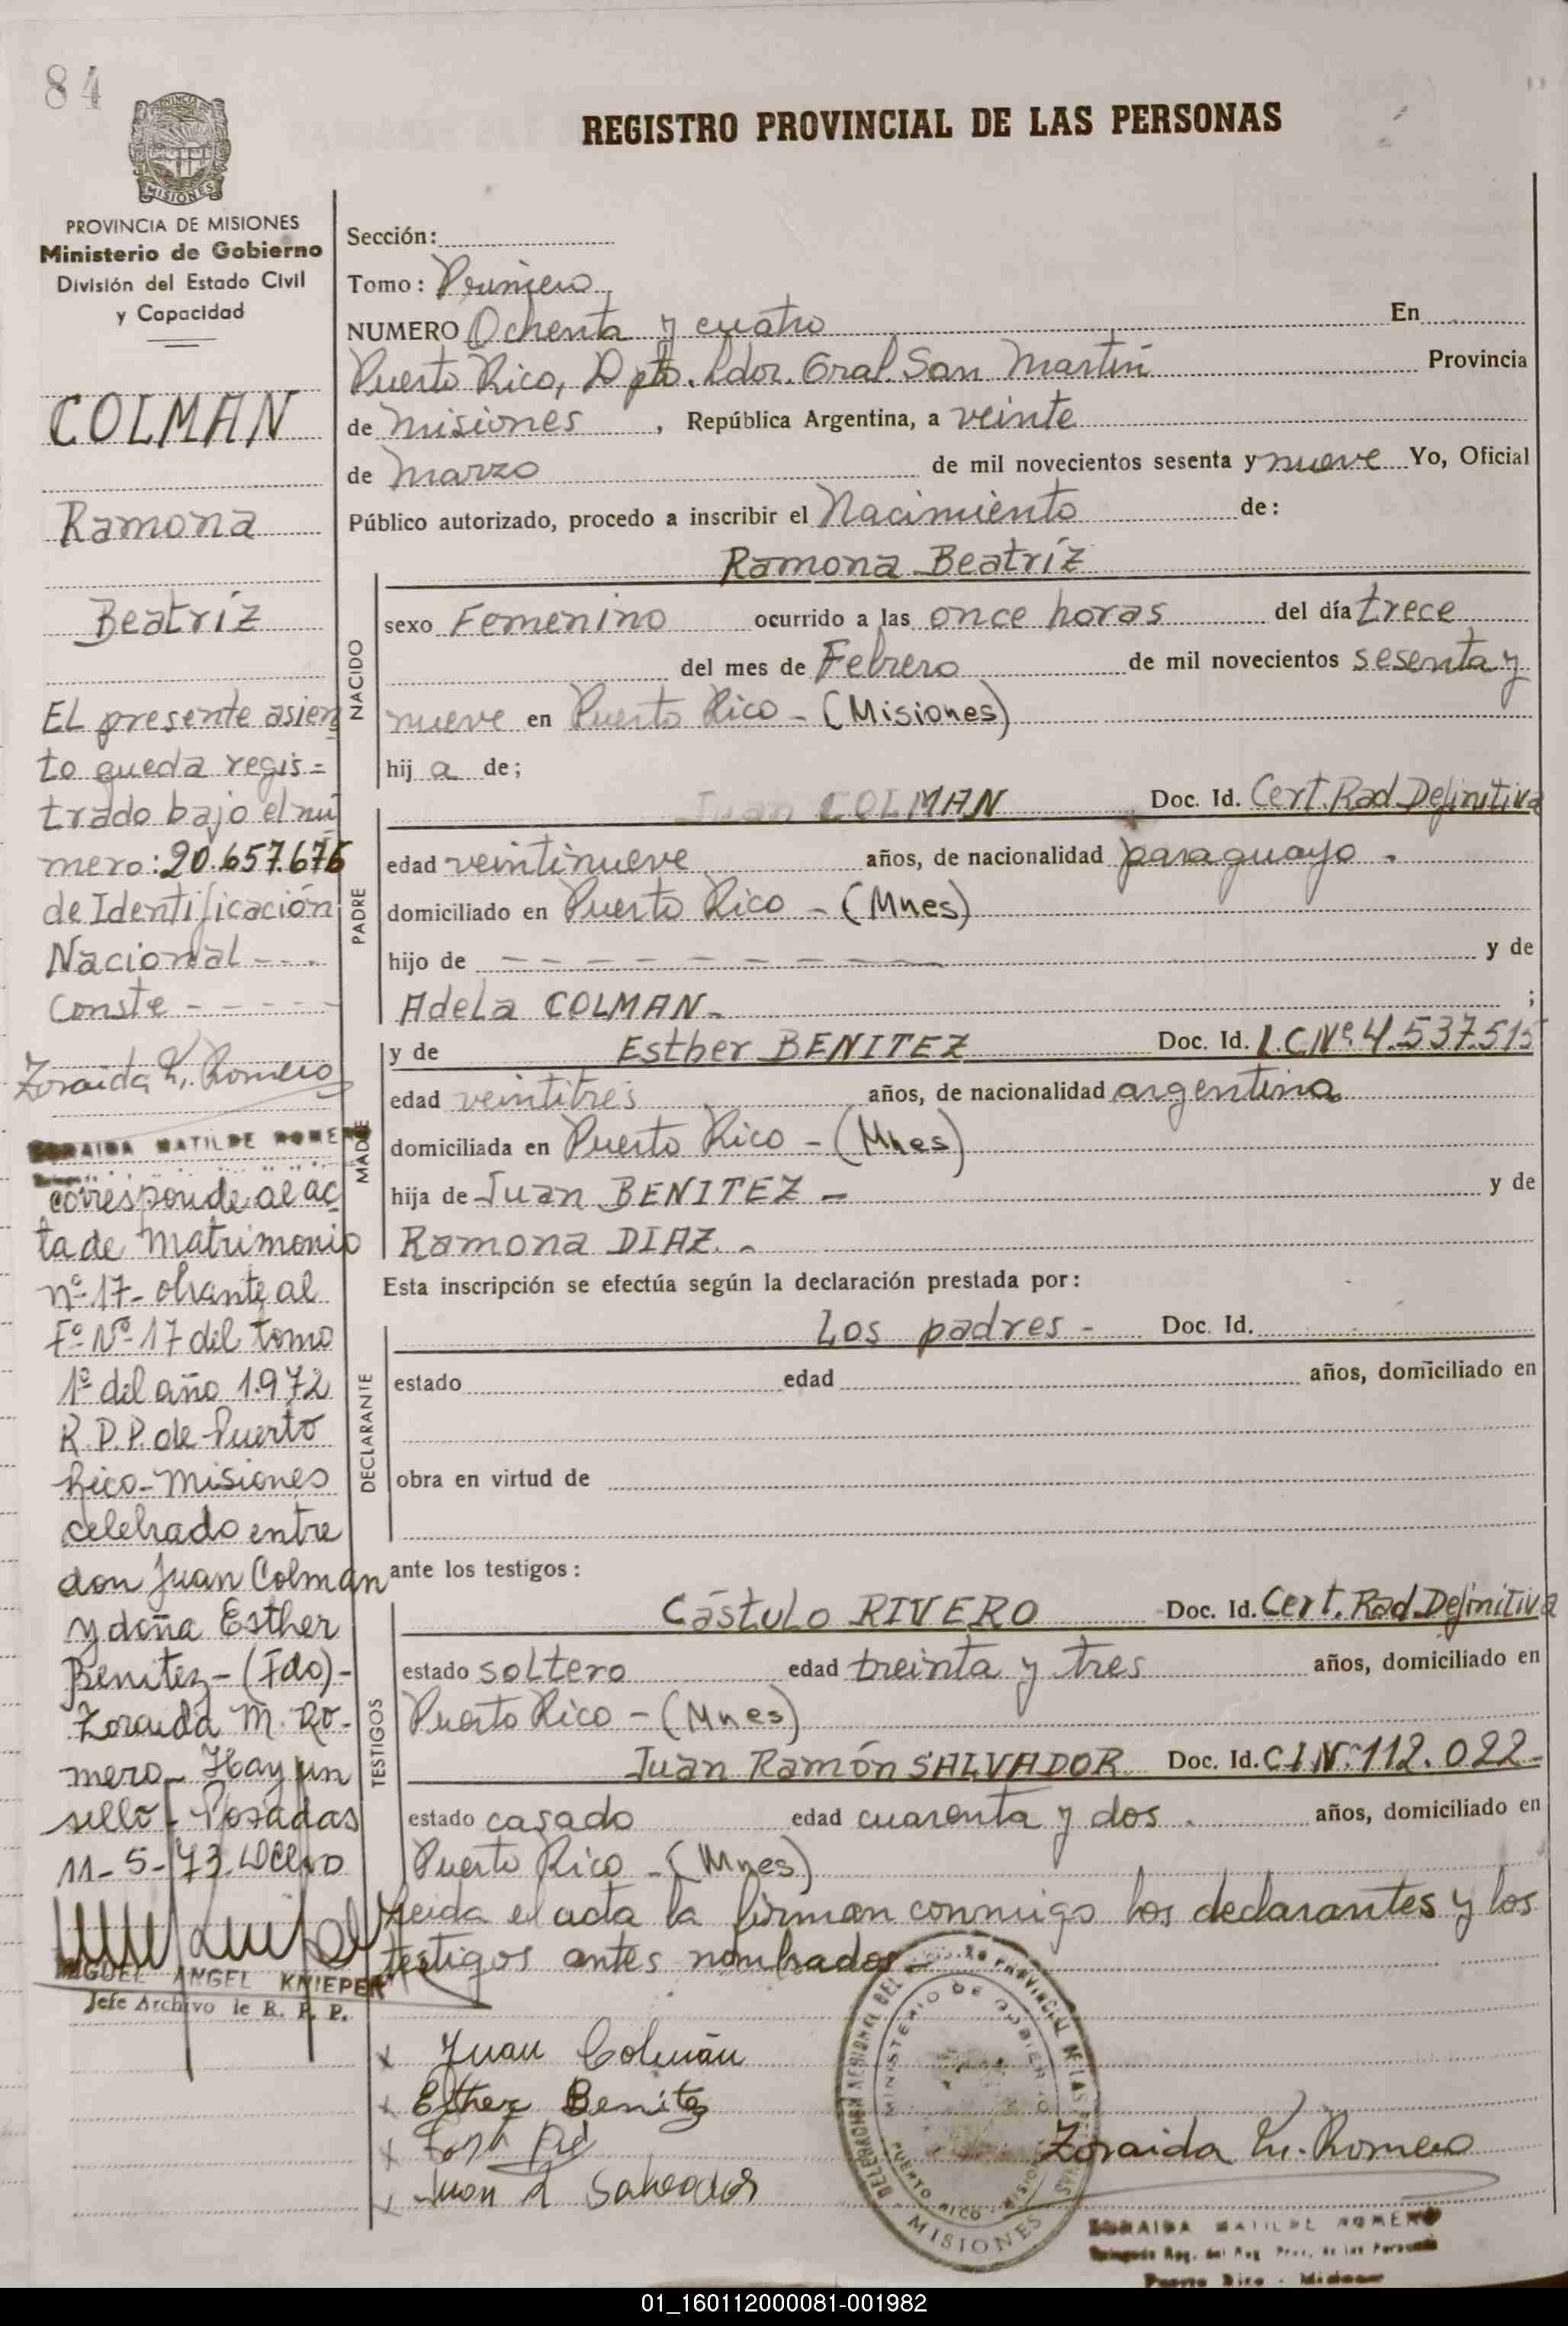 84
REGISTRO PROVINCIAL DE LAS PERSONAS
PROVINCIA DE MISIONES
Ministerio de Gobierno
División del Estado Civil
y Capacidad
COLMAN
Ramona
Beatríz
EL presente asien
to queda regis=
trado bajo el nú
mero: 20.657.676
de Identificación
Nacional - - .
Conste - - - - -
Zoraida M. Romero
ZORAIDA MATILDE ROMERO
corresponde al ac
ta de Matrimonio
nº 17- obrante al
Fº Nº 17 del tomo
1º del año 1.972
R.P.P. de Puerto
Rico-Misiones
celebrado entre
don Juan Colman
y doña Esther
Benitez-(Fdo)-
Zoraida M. Ro-
mero- Hay un
sello- Posadas
11-5-73.
MIGUEL ANGEL KNIEPER
Jefe Archivo de R. P. P.
Sección:
Tomo: Primero
NUMERO Ochenta y cuatro En
Puerto Rico, Dpto. Ldor. Gral. San Martín Provincia
de Misiones, República Argentina, a veinte
de Marzo de mil novecientos sesenta y nueve Yo, Oficial
Público autorizado, procedo a inscribir el Nacimiento de:
Ramona Beatríz
NACIDO
sexo Femenino ocurrido a las once horas del día trece
del mes de Febrero de mil novecientos sesenta y
nueve en Puerto Rico - (Misiones)
hij a de;
PADRE
Juan COLMAN Doc. Id. Cert. Rad Definitiva
edad veintinueve años, de nacionalidad paraguayo.
domiciliado en Puerto Rico - (Mnes)
hijo de - - - - - - - - y de
Adela COLMAN.- ;
MADRE
y de Esther BENITEZ Doc. Id. L.C Nº 4.537.515
edad veintitrés años, de nacionalidad argentina.
domiciliada en Puerto Rico - (Mnes)
hija de Juan BENITEZ - y de
Ramona DIAZ. -
Esta inscripción se efectúa según la declaración prestada por:
DECLARANTE
Los padres - Doc. Id.
estado edad años, domiciliado en
obra en virtud de
ante los testigos:
TESTIGOS
Cástulo RIVERO Doc. Id. Cert. Rad Definitiva
estado soltero edad treinta y tres años, domiciliado en
Puerto Rico - (Mnes)
Juan Ramón SALVADOR Doc. Id. C I Nº 112.022-
estado casado edad cuarenta y dos . años, domiciliado en
Puerto Rico - (Mnes)
Leída el acta la firman conmigo los declarantes y los
testigos antes nombrados-
x Juan Colmán
x Esther Benitez
x
x Juan R Salvador
DELEGACION REGIONAL DEL REG PROVINCIAL DE LAS PERSONAS
MINISTERIO DE GOBIERNO
PUERTO RICO - MISIONES
MISIONES
Zoraida M. Romero
ZORAIDA MATILDE ROMERO
Delegada Reg. del Reg Prov. de las Personas
Puerto Rico - Misiones
01_160112000081-001982